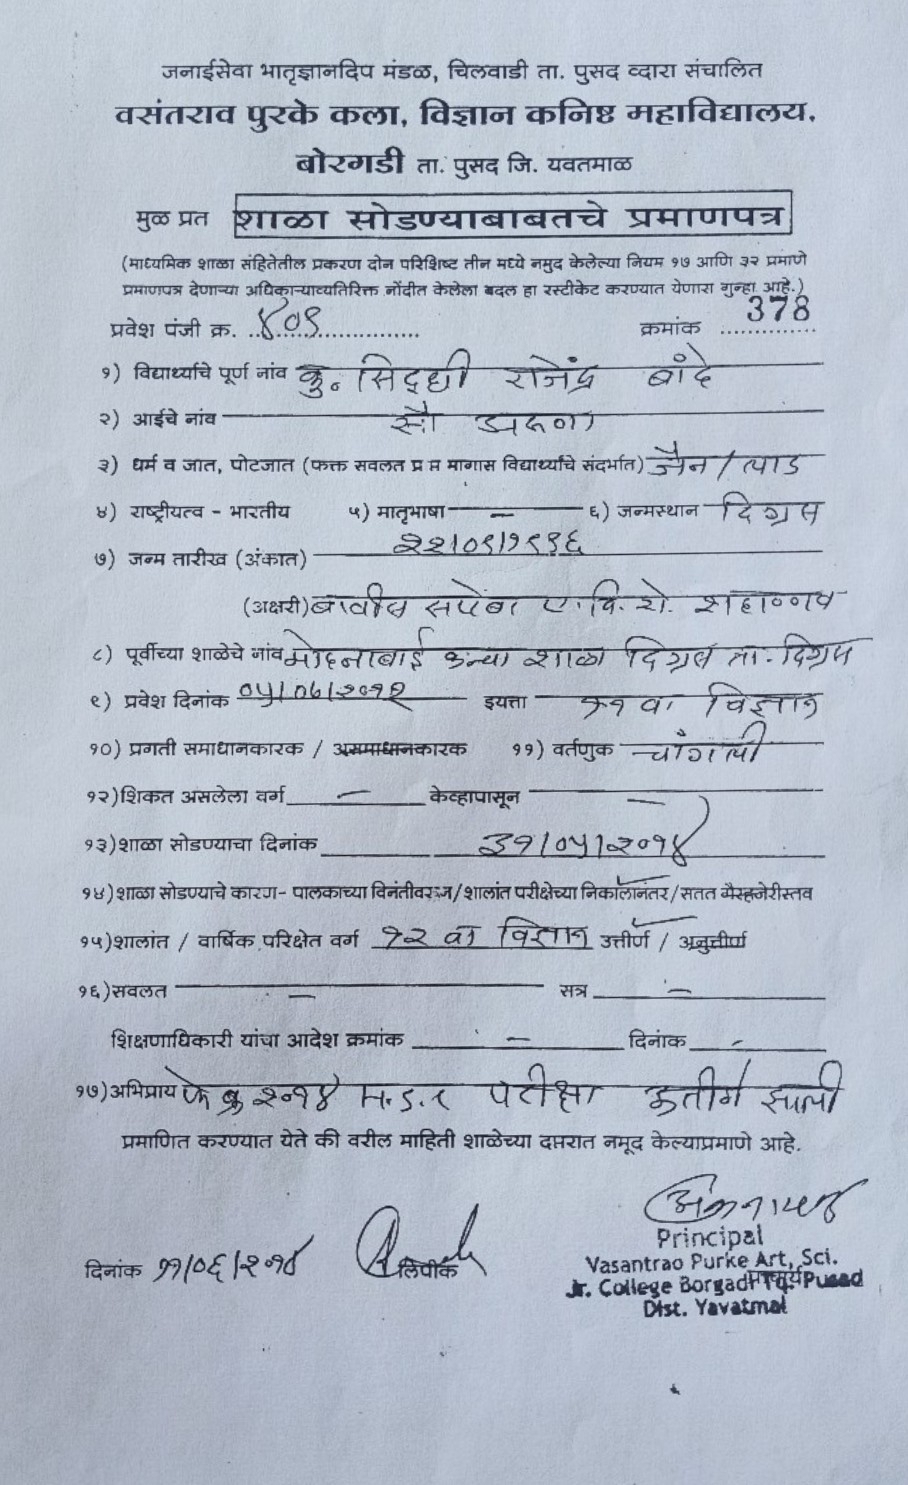 जनाईसेवा भातृज्ञानदिप मंडळ, चिलवाडी ता. पुसद व्दारा संचालित
वसंतराव पुरके कला, विज्ञान कनिष्ठ महाविद्यालय,
बोरगडी ता. पुसद जि. यवतमाळ
मुळ प्रत शाळा सोडण्याबाबतचे प्रमाणपत्र
(माध्यमिक शाळा संहितेतील प्रकरण दोन परिशिष्ट तीन मध्ये नमुद केलेल्या नियम १७ आणि ३२ प्रमाणे
प्रमाणपत्र देणाऱ्या अधिकाऱ्याव्यतिरिक्त नोंदीत केलेला बदल हा रस्टीकेट करण्यात येणारा गुन्हा आहे.)
प्रवेश पंजी क्र. ४०९ क्रमांक 378
१) विद्यार्थ्याचे पूर्ण नांव कु. सिद्धी राजेंद्र बांदे
२) आईचे नांव सौ
३) धर्म व जात, पोटजात (फक्त सवलत प्राप्त मागास विद्यार्थ्यांचे संदर्भात) जैन / लाड
४) राष्ट्रीयत्व - भारतीय ५) मातृभाषा - ६) जन्मस्थान दिग्रस
७) जन्म तारीख (अंकात) २२/०९/१९९६
(अक्षरी) बावीस सप्टेंबर ए.वि.शे. शहाण्णव
८) पूर्वीच्या शाळेचे नांव मोहनाबाई कन्या शाळा दिग्रस ता. दिग्रस
९) प्रवेश दिनांक ०५/०७/२०१२ इयत्ता ११ वा विज्ञान
१०) प्रगती समाधानकारक / असमाधानकारक ११) वर्तणुक चांगली
१२) शिकत असलेला वर्ग - केव्हापासून -
१३) शाळा सोडण्याचा दिनांक ३१/०५/२०१४
१४) शाळा सोडण्याचे कारण- पालकाच्या विनंतीवरून/शालांत परीक्षेच्या निकालानंतर/सतत गैरहजेरीस्तव
१५) शालांत / वार्षिक परिक्षेत वर्ग १२ वा विज्ञान उत्तीर्ण / अनुत्तीर्ण
१६) सवलत - सत्र -
शिक्षणाधिकारी यांचा आदेश क्रमांक - दिनांक -
१७) अभिप्राय फेब्रु २०१४ परीक्षा उत्तीर्ण झाली
प्रमाणित करण्यात येते की वरील माहिती शाळेच्या दप्तरात नमूद केल्याप्रमाणे आहे.
दिनांक ११/०६/२०१४ लिपीक
Principal
Vasantrao Purke Art, Sci.
Jr. College Borgadi Tq. Pusad
Dist. Yavatmal